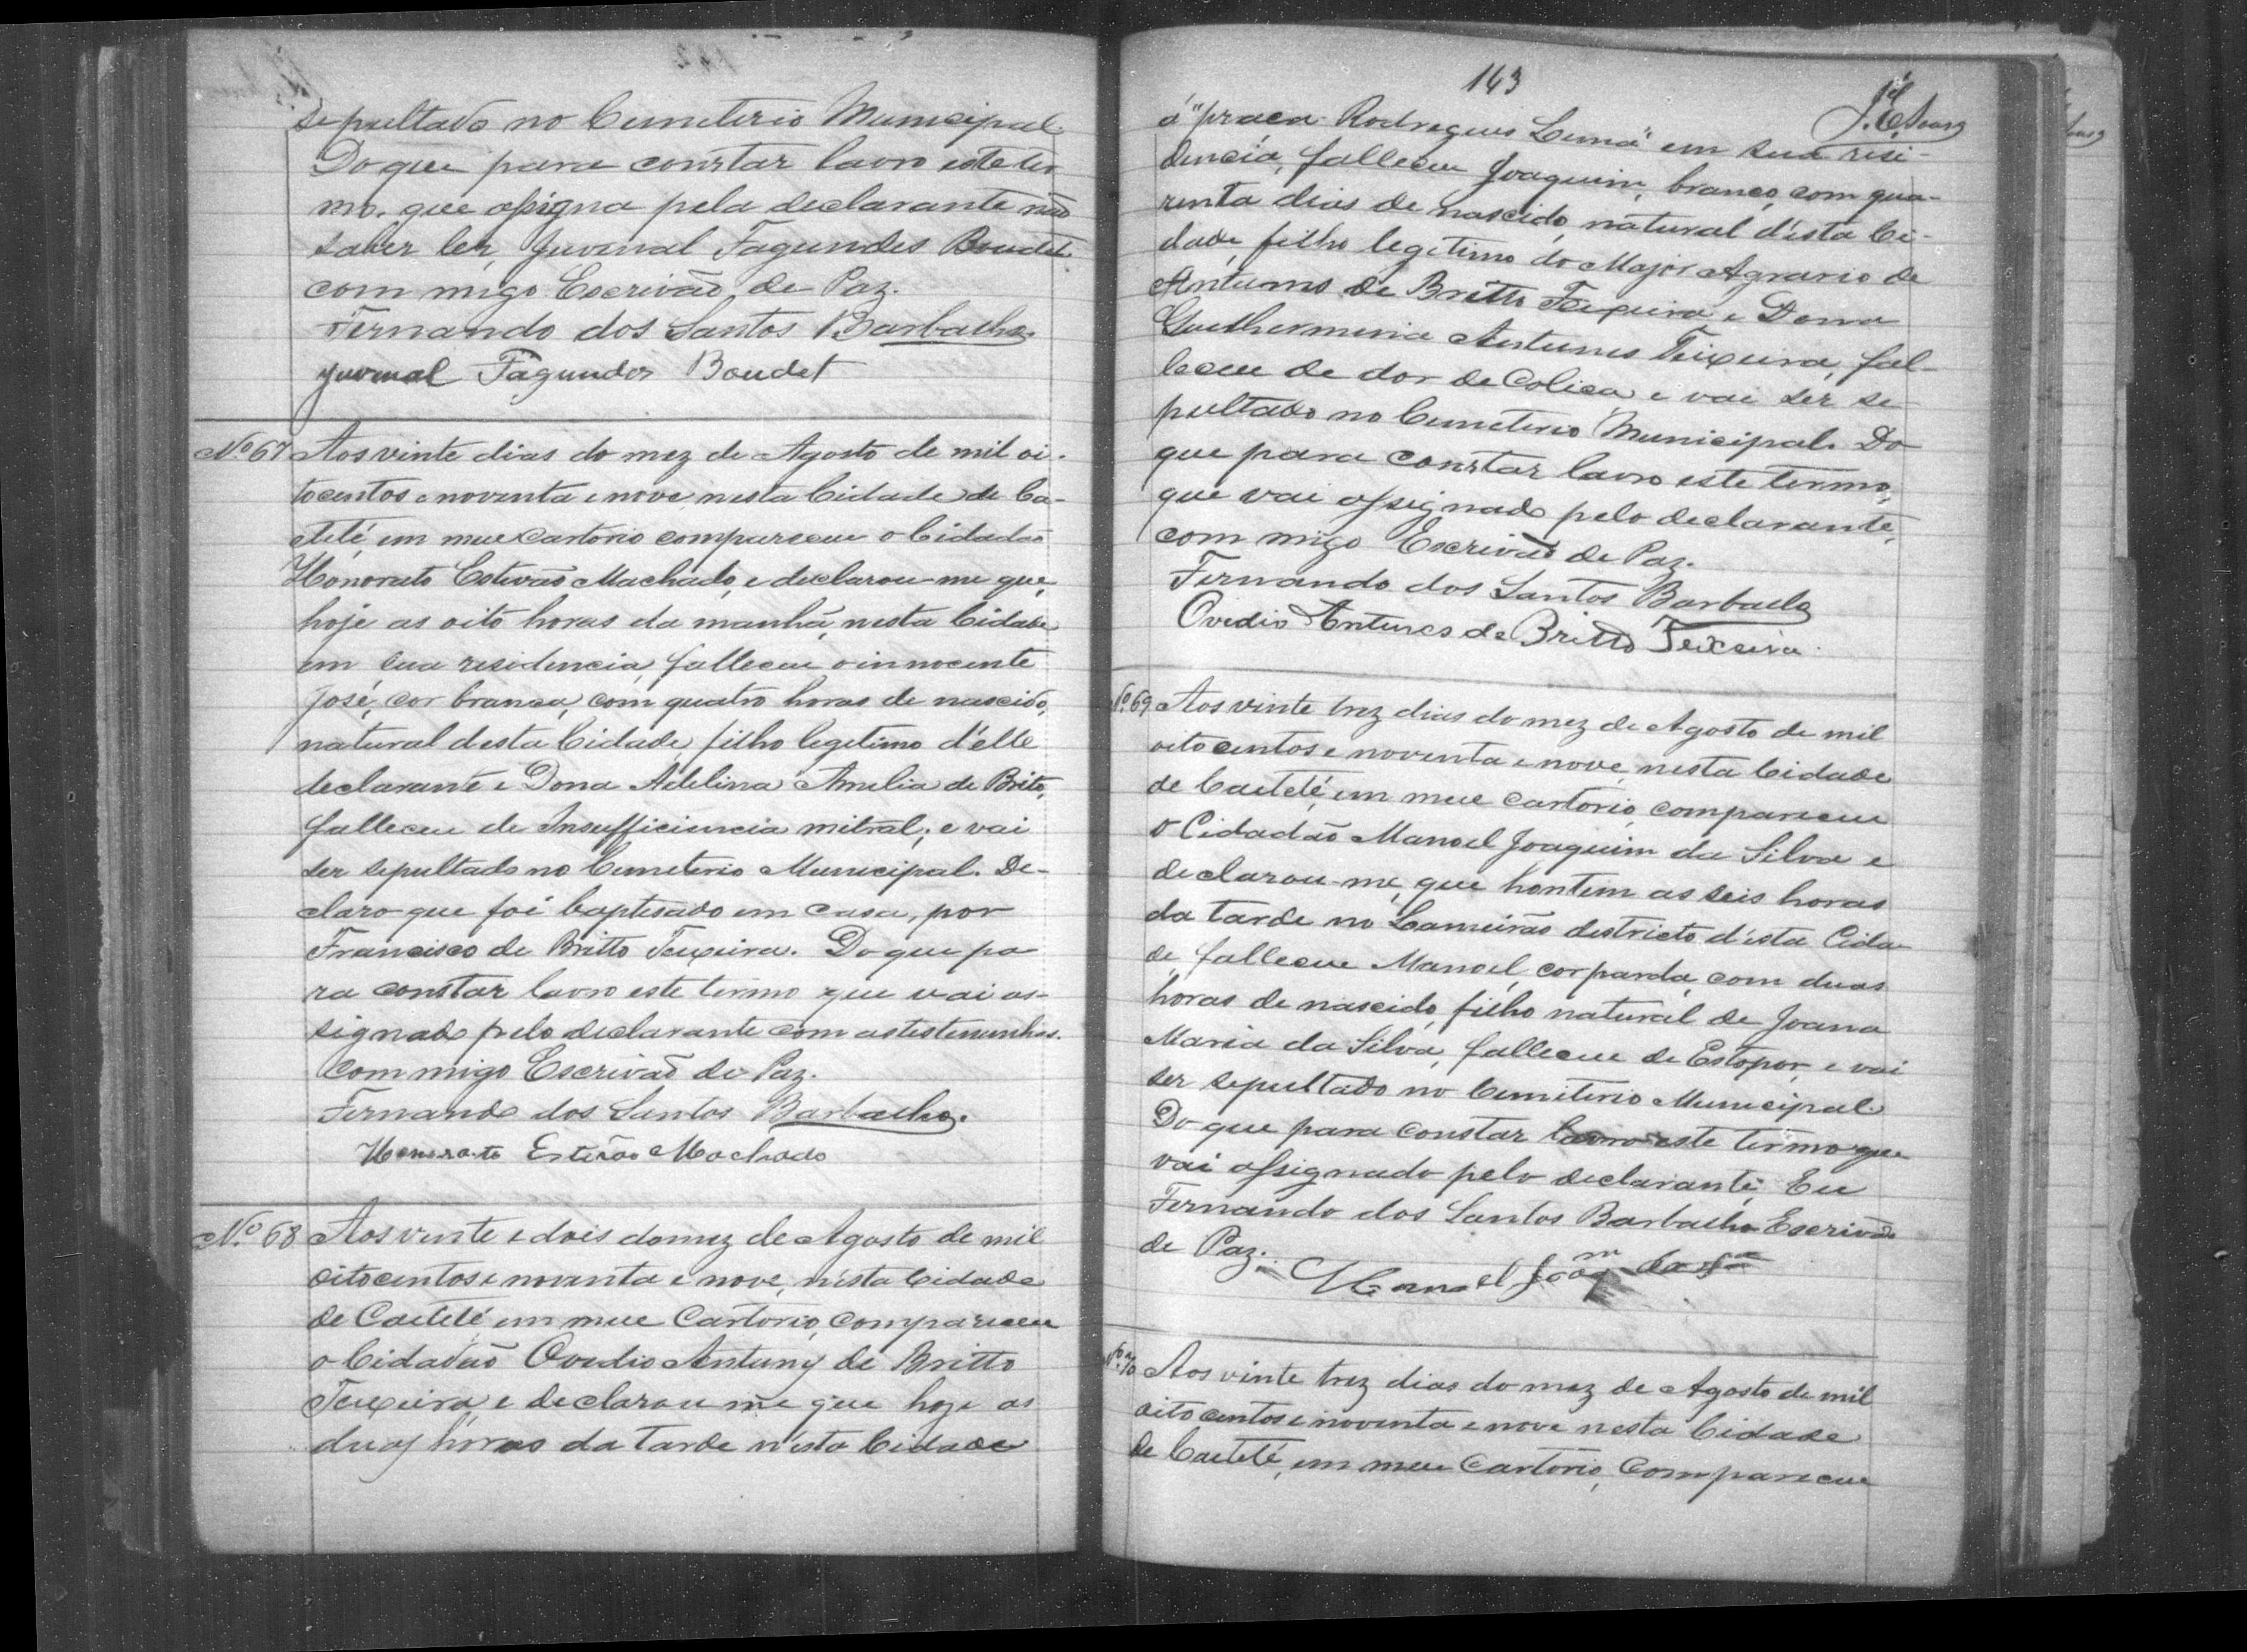 sepultado no Cemiterio Municipal
Do que para constar lavro este ter
mo. que assigna pela declarante não
saber ler, Juvenal Fagundes Boudet
com migo Escrivão de Paz.
Fernando dos Santos Barbalho.
Juvenal Fagundes Boudet
Nº 67 Aos vinte dias do mez de Agosto de mil oi-
tocentos e noventa e nove, nesta Cidade de Ca-
etité, em meu Cartorio compareceu o Cidadão
Honorato Estevão Machado, e declarou-me que,
hoje as oito horas da manhã, nesta Cidade
em sua residencia, falleceu o innocente
José, cor branca, com quatro horas de nascido,
natural desta Cidade, filho legitimo d'elle
declarante e Dona Adelina Amelia de Brito,
falleceu de Insufficiencia mitral; e vai
ser sepultado no Cemeterio Municipal. De-
claro que foi baptisado em casa, por
Francisco de Britto Teixeira. Do que pa
ra constar lavro este termo que vai as-
signado pelo declarante com as testemunhas.
Com migo Escrivão de Paz.
Fernando dos Santos Barbalho.
Honorato Estevão Machado
Nº 68 Aos vinte e dois do mez de Agosto de mil
oitocentos e noventa e nove, n'esta Cidade
de Caetité em meu Cartorio, compareceu
o Cidadão Ovidio Antunes de Britto
Teixeira, e declarou me que hoje as
duas horas da tarde n'esta Cidade
143
á "praca Rodrigues Lima" em sua resi-
dencia, falleceu Joaquim, branco, com qua-
renta dias de nascido, natural d'esta Ci-
dade, filho legitimo do Major Agrario de
Antunes de Britto Teixeira e Dona
Guilhermina Antunes Teixeira, fal-
leceu de dor de Colica e vai ser se
pultado no Cemeterio Municipal. Do
que para constar lavro este termo,
que vai assignado pelo declarante,
com migo Escrivão de Paz.
Fernando dos Santos Barbalho
Ovidio Antunes de Britto Teixeira.
Nº 69 Aos vinte trez dias do mez de Agosto de mil
oitocentos e noventa e nove, nesta Cidade
de Caetité, em meu cartorio, compareceu
o Cidadão Manoel Joaquim da Silva e
declarou-me, que hontem as seis horas
da tarde no Lameirão destricto d'esta Cida
de, falleceu Manoel, cor parda, com duas
horas de nascido, filho natural de Joana
Maria da Silva, falleceu de Estopor, e vai
ser sepultado no Cemiterio Municipal.
Do que para constar lavro este termo que
vai assignado pelo declarante, Eu
Fernando dos Santos Barbalho Escrivão
de Paz.
Manoel Joaqm da Sa
Nº 70 Aos vinte trez dias do mez de Agosto de mil
oitocentos e noventa e nove nesta Cidade
de Caetité, em meu Cartorio, Compareceu